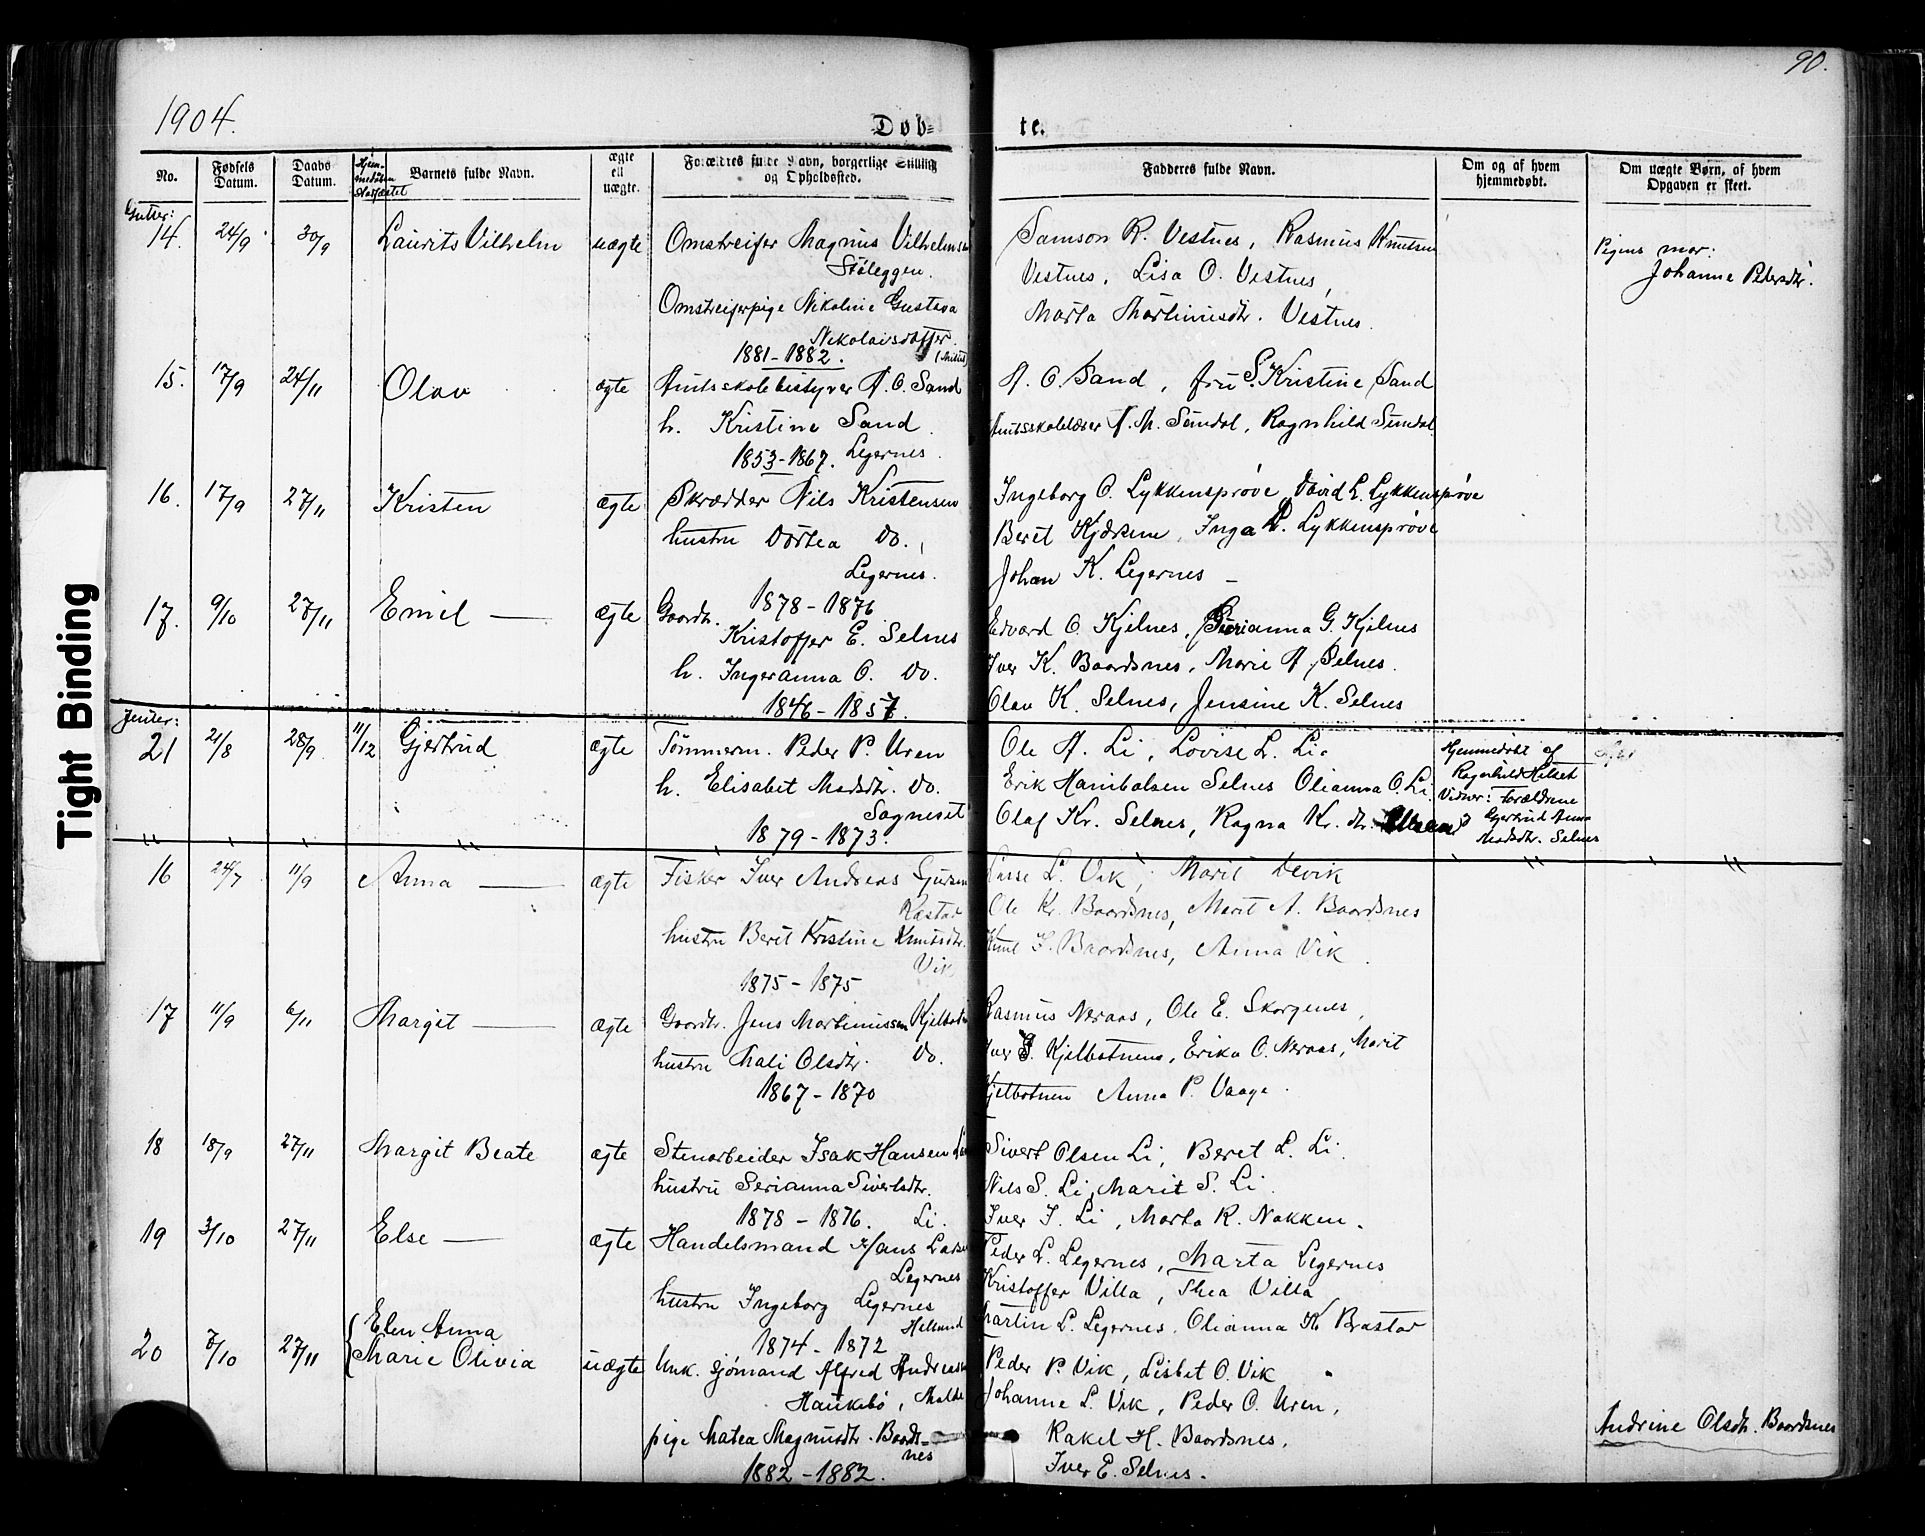 90.
1904.
Døb-
te.
No.
Fødsels Datum.
Daabs Datum.
Barnets fulde Navn.
ægte ell uægte.
Forældres fulde Navn, borgerlige Stilling og Opholdssted.
Fadderes fulde Navn.
Om og af hvem hjemmedøbt.
Om uægte Børn, af hvem Opgaven er skeet.
Gutter:
14. 24/9 30/9 Laurits Vilhelm uægte Omstreifer Magnus Vilhelmsen Samson R. Vestnes, Rasmus Knutsen Pigens mor:
Støleggen. Vestnes, Lisa O. Vestnes, Johanne Pedersdtr.
Omstreiferpige Nikoline Gustava Marta Martinusdtr. Vestnes.
Nikolaisdatter.
1881-1882.
15. 17/9 24/11 Olav ægte Amtsskolebestyrer A. O. Sand A. O. Sand, fru S. Kristine Sand
h. Kristine Sand A. M. Sundal, Ragnhild Sundal
1853-1867. Legernes.
16. 17/9 27/11 Kristen ægte Skrædder Nils Kristensen Ingeborg O. Lykkensprøve, David L. Lykkensprøve
hustru Dortea Do., Beret Inga L. Lykkensprøve
Legernes. Johan K. Legernes
1878-1876
17. 9/10 27/11 Emil ægte Gaardbr. Edvard O. Kjelnes, Serianna G. Kjelnes
Kristoffer E. Selnes Iver K. Baardsnes, Marie A. Selnes.
h. Ingeranna O. Do. Olav K. Selnes, Jensine K. Selnes
1846-1857.
Jenter:
21 21/8 28/9 11/12 Gjertrud ægte Tømmerm. Peder P. Uren Ole A. Li, Lovise L. Li. Hjemmedøbt af
h. Elisabet Madsdtr. Do. Erik Hanibalsen Selnes Olianna O. Li. Ragnhild Helset
Sagneset Olaf Kr. Selnes, Ragna Kr. dtr. Vidner: Forældrene
1879-1873. Gjertrud Anna
Madsdtr. Selnes
16 24/7 11/9 Anna ægte Fisker Iver Andreas L. Vik, Marit
Ole Kr. Baardsnes, Marit A. Baardsnes
hustru Beret Kristine Knutsdtr. Knut I. Baardsnes, Anna Vik.
Vik
1875-1875
17 11/9 6/11 Margit ægte Gaardbr. Jens Martinussen Kjelbotn Rasmus Neraas, Ole E. Skorgenes,
hustru Mali Olsdtr. Do. Iver J. Kjelbotnens, Erika O. Neraas, Marit
1867-1870 Kjelbotnen Anna P. Vaage.
18 18/9 27/11 Margit Beate ægte Stenarbeider Isak Hansen Sivert Olsen Li, Beret L. Li.
hustru Serianna Sivertsdtr. Nils S. Li, Marit S. Li.
1878-1876. Li. Iver I. Li, Marta R. Nakken.
19 3/10 27/11 Else ægte Handelsmand Hans Larsen Peder L. Legernes, Marta Legernes
Legernes Kristoffer Villa, Thea Villa
hustru Ingeborg Legernes Martin L. Legernes. Olianna K. Brastad
Helland
1874-1872
20 7/10 27/11 Elen Anna
Marie Olivia uægte Unk. sjømand Alfred Andreasen Peder P. Vik, Lisbet O. Vik
Haukebø, Molde Johanne L. Vik, Peder O. Uren,
pige Matea Magnusdtr. Baards- Rakel H. Baardsnes, Andrine Olsdtr. Baardsnes
nes Iver E. Selnes.
1882-1882.
Tight Binding